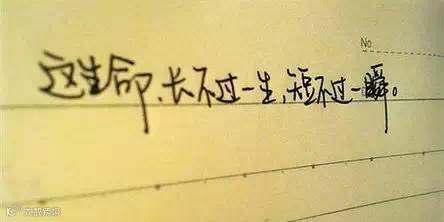 No
这生命、长不过一生,短不过一瞬。